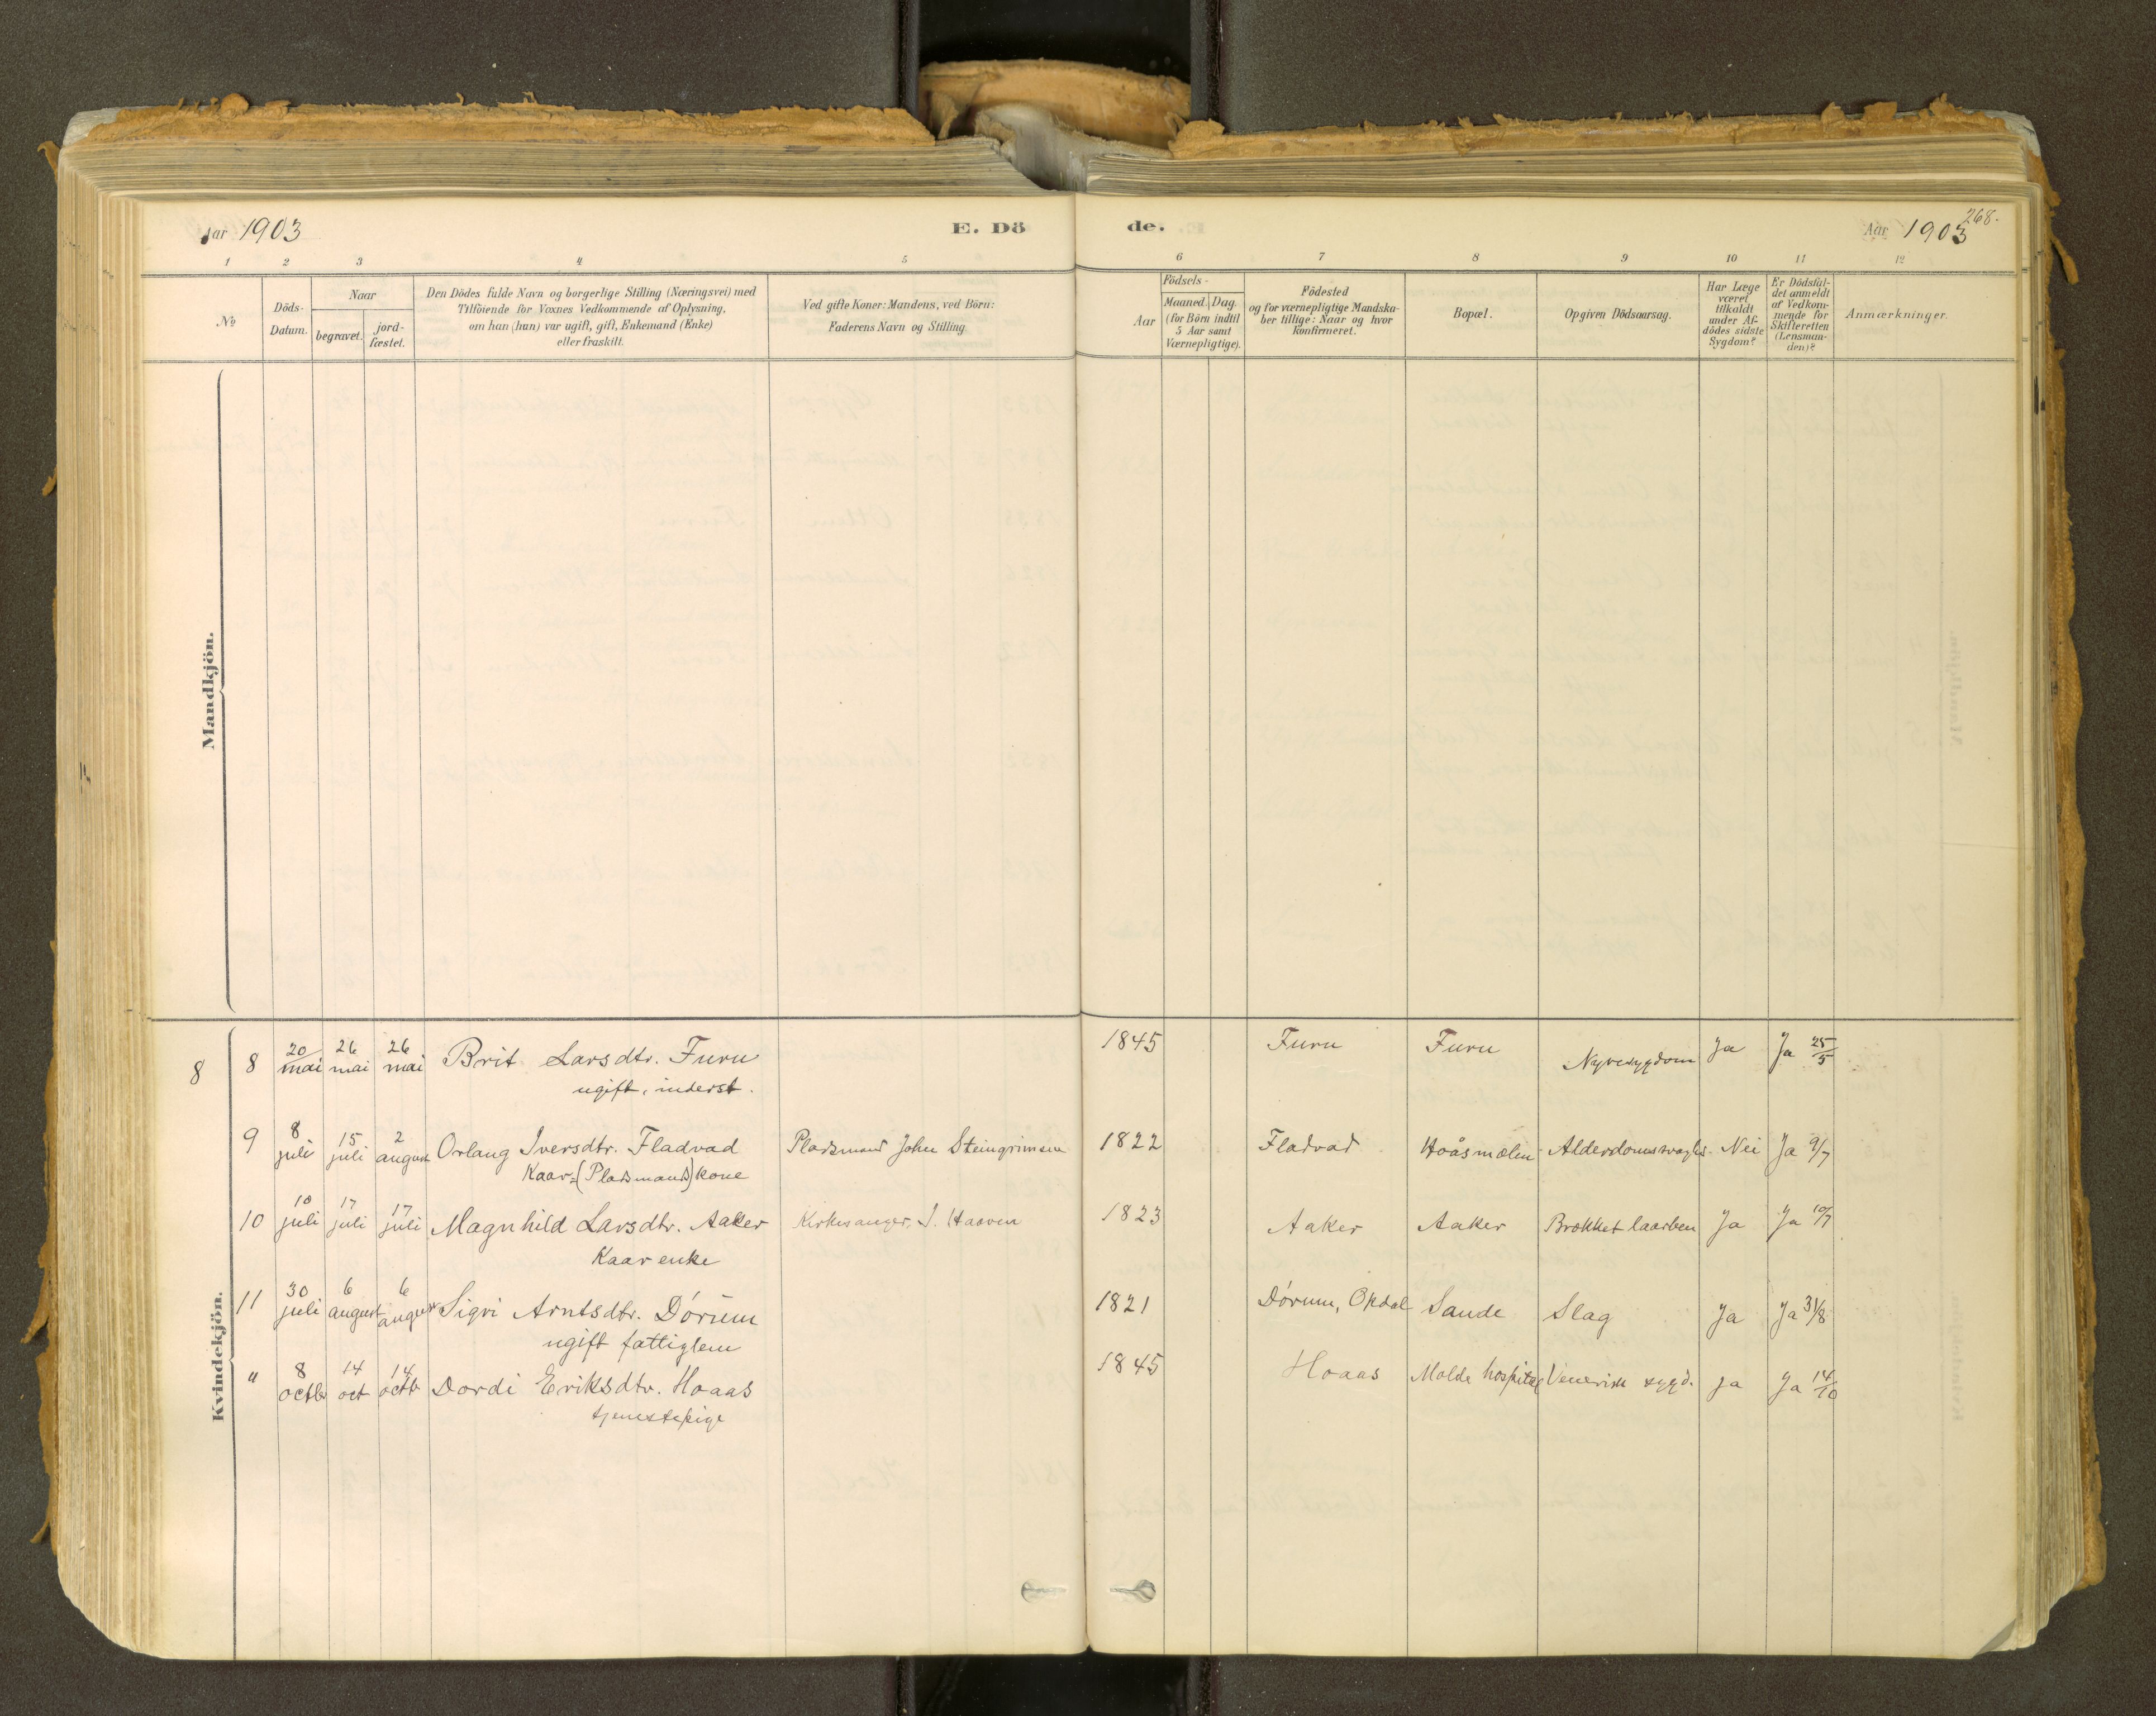 Aar 1903 E. Dö
de. Aar 1903 268.
1 2 3 4 5
6 7 8 9 10 11 12
No
Döds-Datum.
Naar
begravet.
jord-fæstet.
Den Dödes fulde Navn og borgerlige Stilling (Næringsvei) med
Tilföiende for Voxnes Vedkommende af Oplysning,
om han (hun) var ugift, gift, Enkemand (Enke)
eller fraskilt.
Ved gifte Koner: Mandens, ved Börn:
Faderens Navn og Stilling.
Födsels-
Aar
Maaned. Dag.
(for Börn indtil
5 Aar samt
Værnepligtige).
Födested
og for værnepligtige Mandska-
ber tillige: Naar og hvor
konfirmeret.
Bopæl.
Opgiven Dödsaarsag.
Har Læge
været
tilkaldt
under Af-
dödes sidste
Sygdom?
Er Dödsfal-
det anmeldt
af Vedkom-
mende for
Skifteretten
(Lensman-
den)?
Anmærkninger.
Mandkjön.
Kvindekjön.
8 8 20 mai 26 mai 26 mai Brit Larsdtr. Furu 1845 Furu Furu Nyresygdom Ja Ja 25/5
ugift, inderst.
9 8 juli 15 juli 2 august Orlaug Iversdtr. Fladvad Pladsmand John Steingrimsen 1822 Fladvad Hoåsmælen Alderdomssvaghd. Nei Ja 9/7
Kaar=(Pladsmands) kone
10 10 juli 17 juli 17 juli Magnhild Larsdtr. Aaker Kirkesanger, J. Haaven 1823 Aaker Aaker Brækket laarben Ja Ja 10/7
Kaarenke
11 30 juli 6 august 6 august Sigri Arntsdtr. Dórum 1821 Dórum, Opdal Sande Slag Ja Ja 31/8
ugift fattiglem
" 8 octbr 14 oct 14 octb Dordi Eriksdtr. Hoaas 1845 Hoaas Molde hospital Venerisk sygd. ja Ja 14/10
tjenestepige